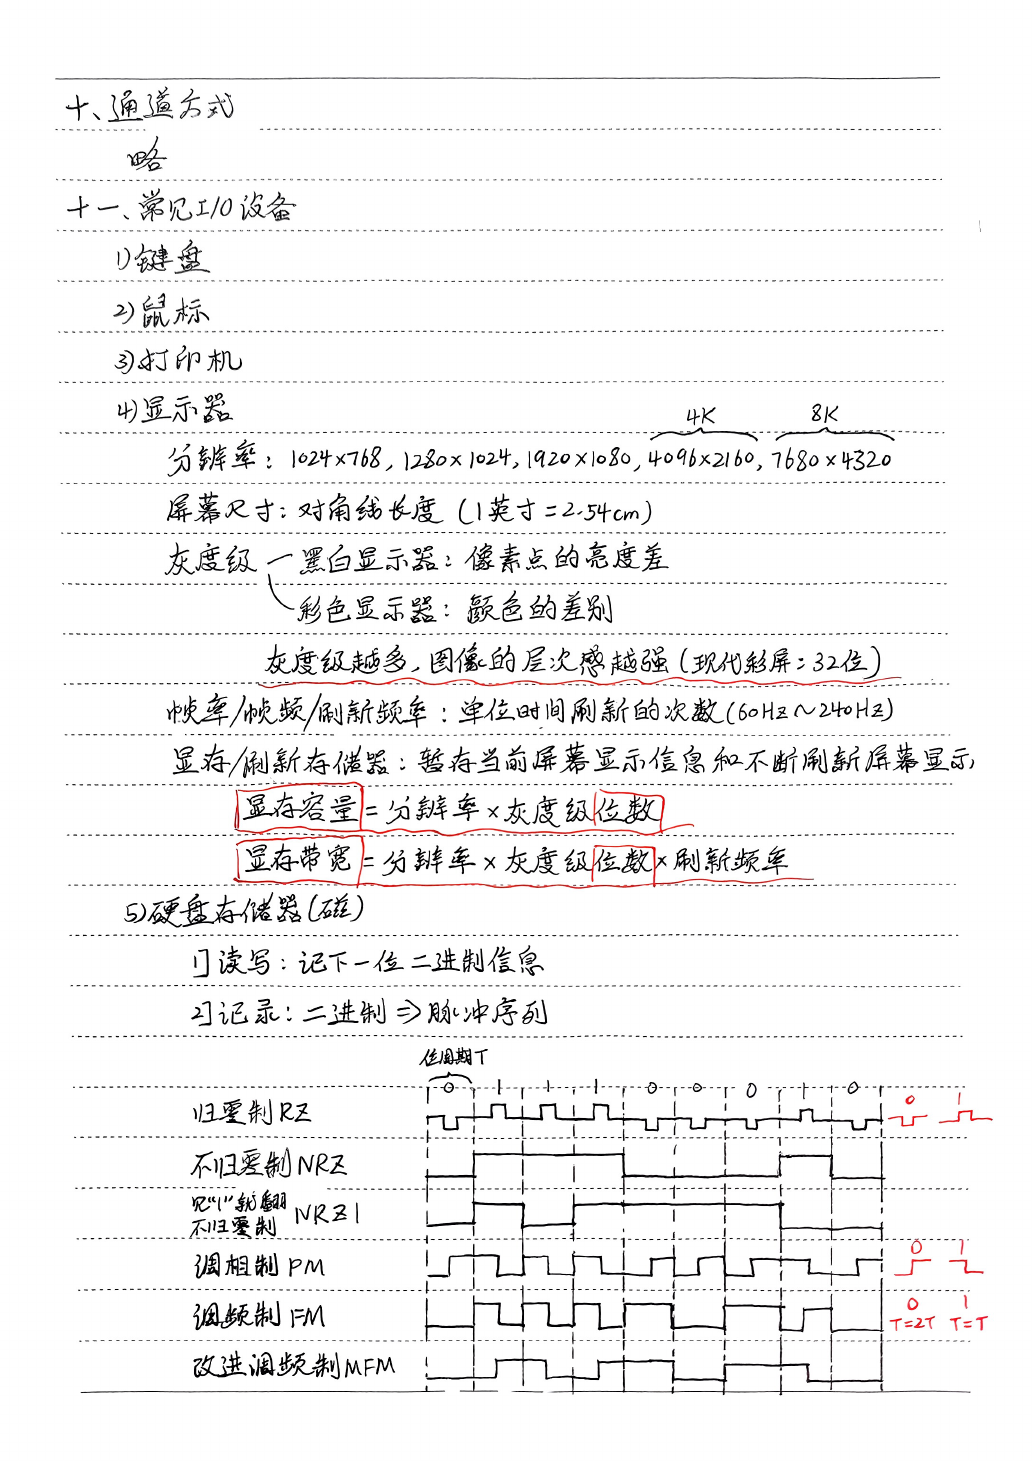 十、通道方式
略
十一、常见I/O设备
1)键盘
2)鼠标
3)打印机
4)显示器 4K 8K
分辨率：1024×768, 1280×1024, 1920×1080, 4096×2160, 7680×4320
屏幕尺寸：对角线长度（1英寸=2.54cm）
灰度级 一黑白显示器：像素点的亮度差
彩色显示器：颜色的差别
灰度级越多，图像的层次感越强（现代彩屏：32位）
帧率/帧频/刷新频率：单位时间刷新的次数(60Hz～240Hz)
显存/刷新存储器：暂存当前屏幕显示信息和不断刷新屏幕显示
显存容量=分辨率×灰度级位数
显存带宽=分辨率×灰度级位数×刷新频率
5)硬盘存储器(磁)
1]读写：记下一位二进制信息
2]记录：二进制⇒脉冲序列
位周期T
0 1 1 1 0 0 0 1 0
归零制RZ 0 1
不归零制NRZ
见"1"就翻
不归零制 NRZ1
调相制PM 0 1
调频制FM 0 1
T=2T T=T
改进调频制MFM